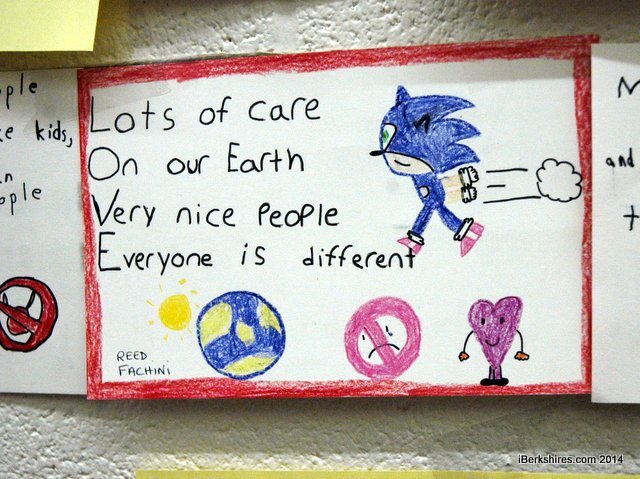 Lots of care
On our Earth
Very nice People
Everyone is different
REED
FACHINI
ple
e kids,
n
ople
M
and
t
iBerkshires.com 2014